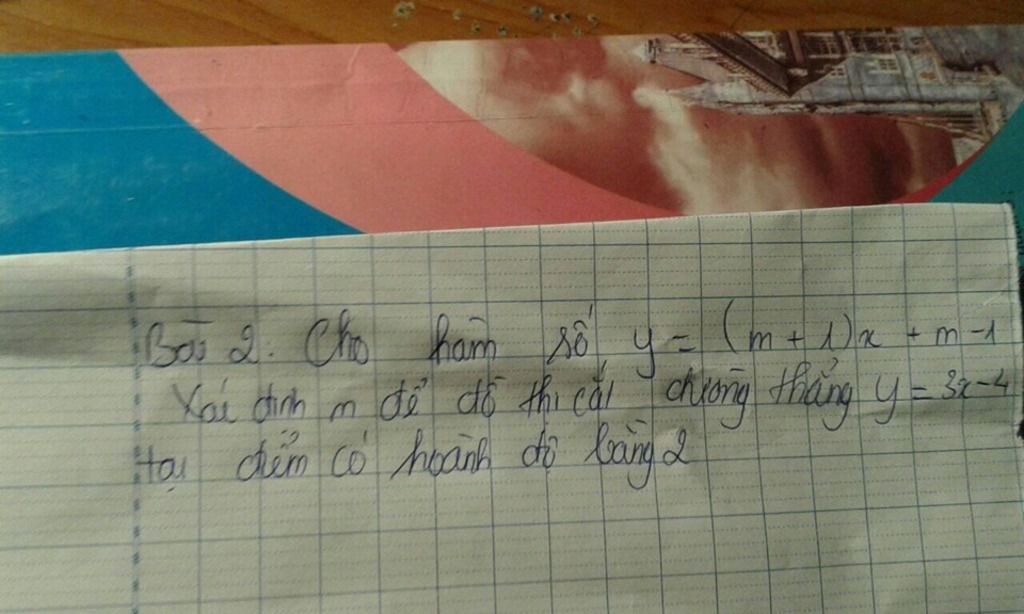 Bài 2. Cho hàm số y = (m + 1)x + m - 1
Xác định m để đồ thị cắt đường thẳng y = 3x - 4
tại điểm có hoành độ bằng 2